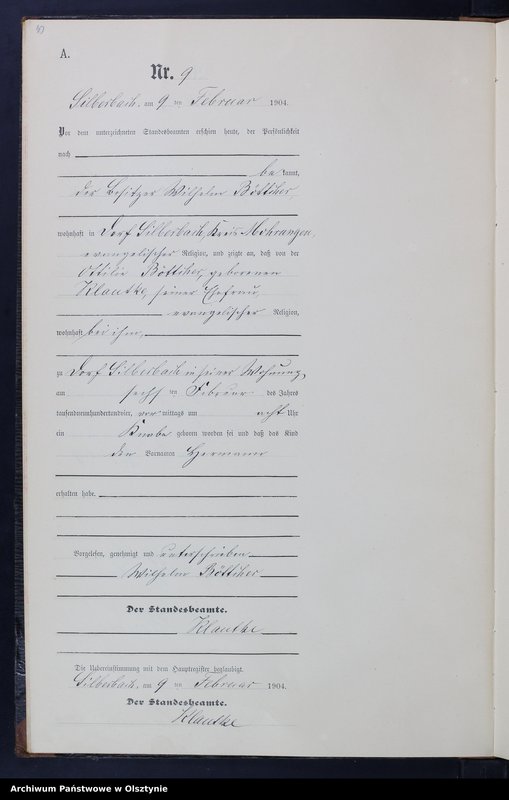 A.
Nr. 9
Silberbach, am 9 ten Februar 1904.
Vor dem unterzeichneten Standesbeamten erschien heute, der Persönlichkeit
nach
be kannt,
der Besitzer Wilhelm Böttcher
wohnhaft in Dorf Silberbach, Kreis Mohrungen,
evangelischer Religion, und zeigte an, daß von der
Ottilie Böttcher, geborenen
Klautke, seiner Ehefrau,
evangelischer Religion,
wohnhaft bei ihm,
zu Dorf Silberbach in seiner Wohnung,
am sechs ten Februar des Jahres
tausendneunhundertundvier, vor mittags um acht Uhr
ein Knabe geboren worden sei und daß das Kind
den Vornamen Hermann
erhalten habe.
Vorgelesen, genehmigt und unterschrieben
Wilhelm Böttcher
Der Standesbeamte.
Klautke
Die Uebereinstimmung mit dem Hauptregister beglaubigt.
Silberbach, am 9 ten Februar 1904.
Der Standesbeamte.
Klautke
Archiwum Państwowe w Olsztynie